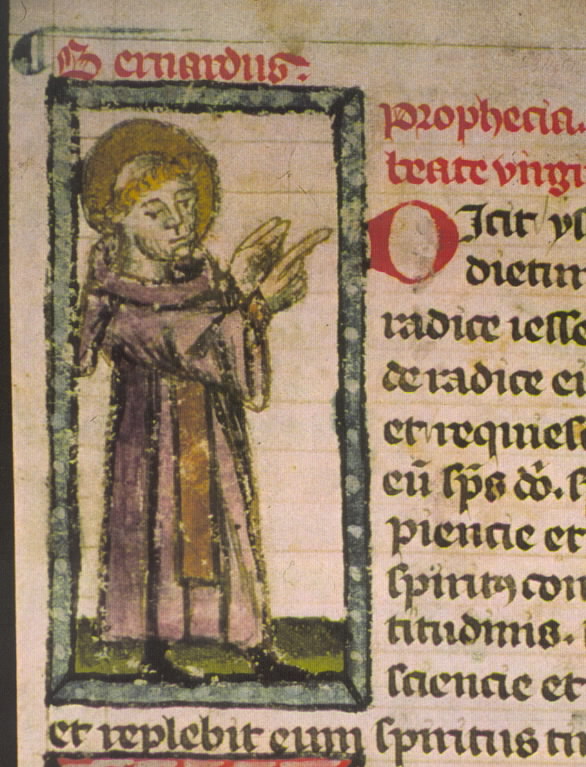 Bernardus.
Prophecia.
beate virgi
Dicit yſ
dietur
radice ieſſe
de radice ei
et requieſc
eū ſps dō. ſ
piencie et
ſpiritꝯ con
titudinis.
ſciencie et
et replebit eum ſpiritus ti